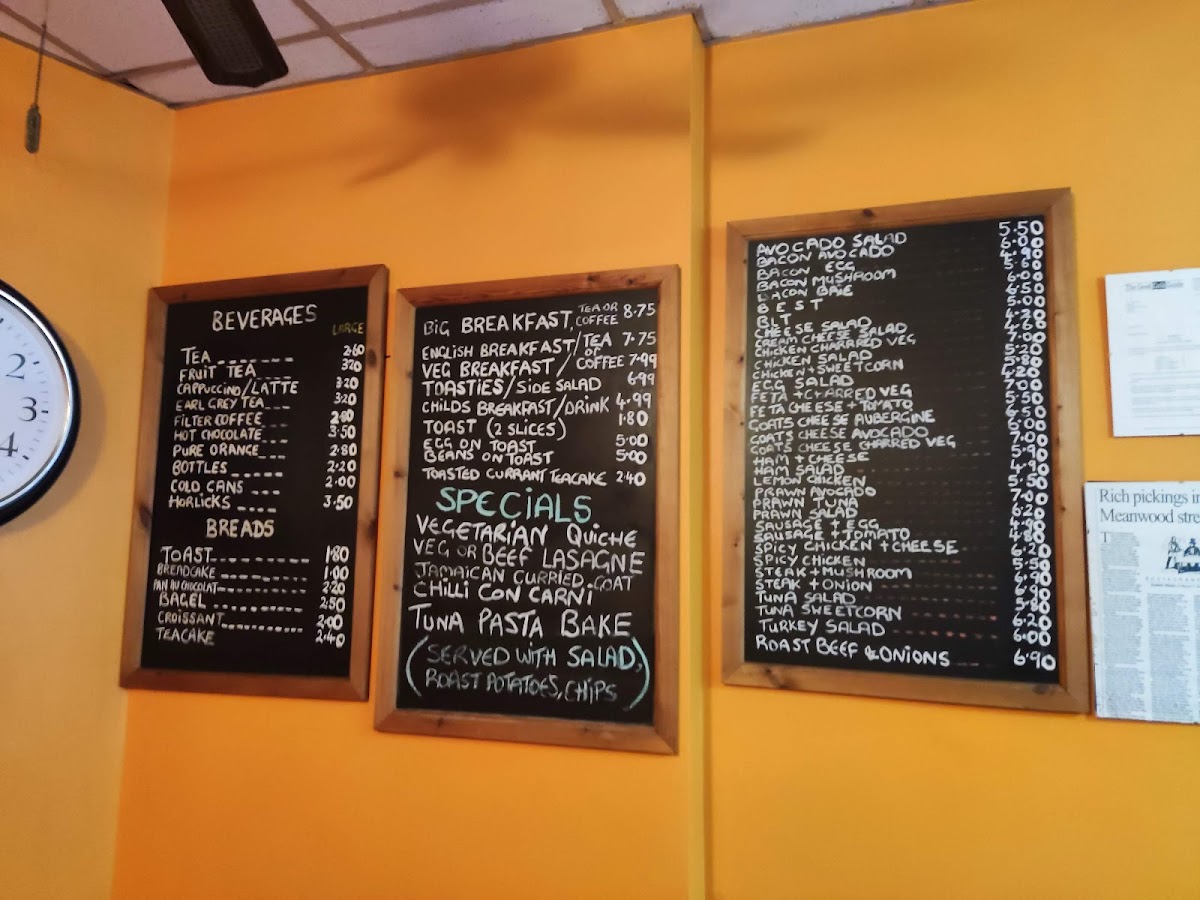 BEVERAGES
LARGE
TEA 2.60
FRUIT TEA 3.20
CAPPUCCINO/LATTE 3.20
EARL GREY TEA 3.20
FILTER COFFEE
HOT CHOCOLATE 3.50
PURE ORANGE 2.80
BOTTLES 2.20
COLD CANS 2.00
HORLICKS 3.50
BREADS
TOAST 1.80
BREADCAKE 1.00
PAN AU CHOCOLAT 2.20
BAGEL 2.50
CROISSANT 2.00
TEACAKE 2.40
BIG BREAKFAST, TEA OR COFFEE 8.75
ENGLISH BREAKFAST/TEA 7.75
OR
VEG BREAKFAST/COFFEE 7.99
TOASTIES/SIDE SALAD 6.99
CHILDS BREAKFAST/DRINK 4.99
TOAST (2 SLICES) 1.80
EGG ON TOAST 5.00
BEANS ON TOAST 5.00
TOASTED CURRANT TEACAKE 2.40
SPECIALS
VEGETARIAN QUICHE
VEG OR BEEF LASAGNE
JAMAICAN CURRIED GOAT
CHILLI CON CARNI
TUNA PASTA BAKE
(SERVED WITH SALAD,
ROAST POTATOES, CHIPS)
AVOCADO SALAD 5.50
BACON AVOCADO 6.00
BACON EGG 4.90
BACON MUSHROOM 5.60
BACON BRIE 6.00
B E S T 6.50
BLT 5.00
CHEESE SALAD 4.20
CREAM CHEESE SALAD 4.60
CHICKEN CHARRRED VEG 7.00
CHICKEN SALAD 5.20
CHICKEN + SWEETCORN 5.80
EGG SALAD 4.20
FETA + CHARRED VEG 7.00
FETA CHEESE + TOMATO 5.50
GOATS CHEESE AUBERGINE
GOATS CHEESE AVOCADO 6.50
GOATS CHEESE CHARRED VEG 6.00
HAM + CHEESE
HAM SALAD 4.90
LEMON CHICKEN 5.50
PRAWN AVOCADO 7.00
PRAWN TUNA
PRAWN SALAD 6.20
SAUSAGE + EGG
SAUSAGE + TOMATO 4.80
SPICY CHICKEN + CHEESE 6.20
SPICY CHICKEN 5.50
STEAK + MUSHROOM 6.90
STEAK + ONION 6.90
TUNA SALAD 5.80
TUNA SWEETCORN 6.20
TURKEY SALAD 6.00
ROAST BEEF & ONIONS 6.90
Rich pickings in
Meanwood stre
2
3
4